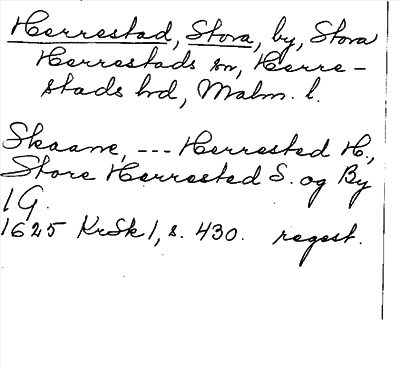 Herrestad, Stora, by, Stora
Herrestads sn, Herre-
stads hd, Malm. l.
Skaane, --- Herrested H.,
Store Herrested S. og By
1 G.
1625 KrSk 1, s. 430. regest.